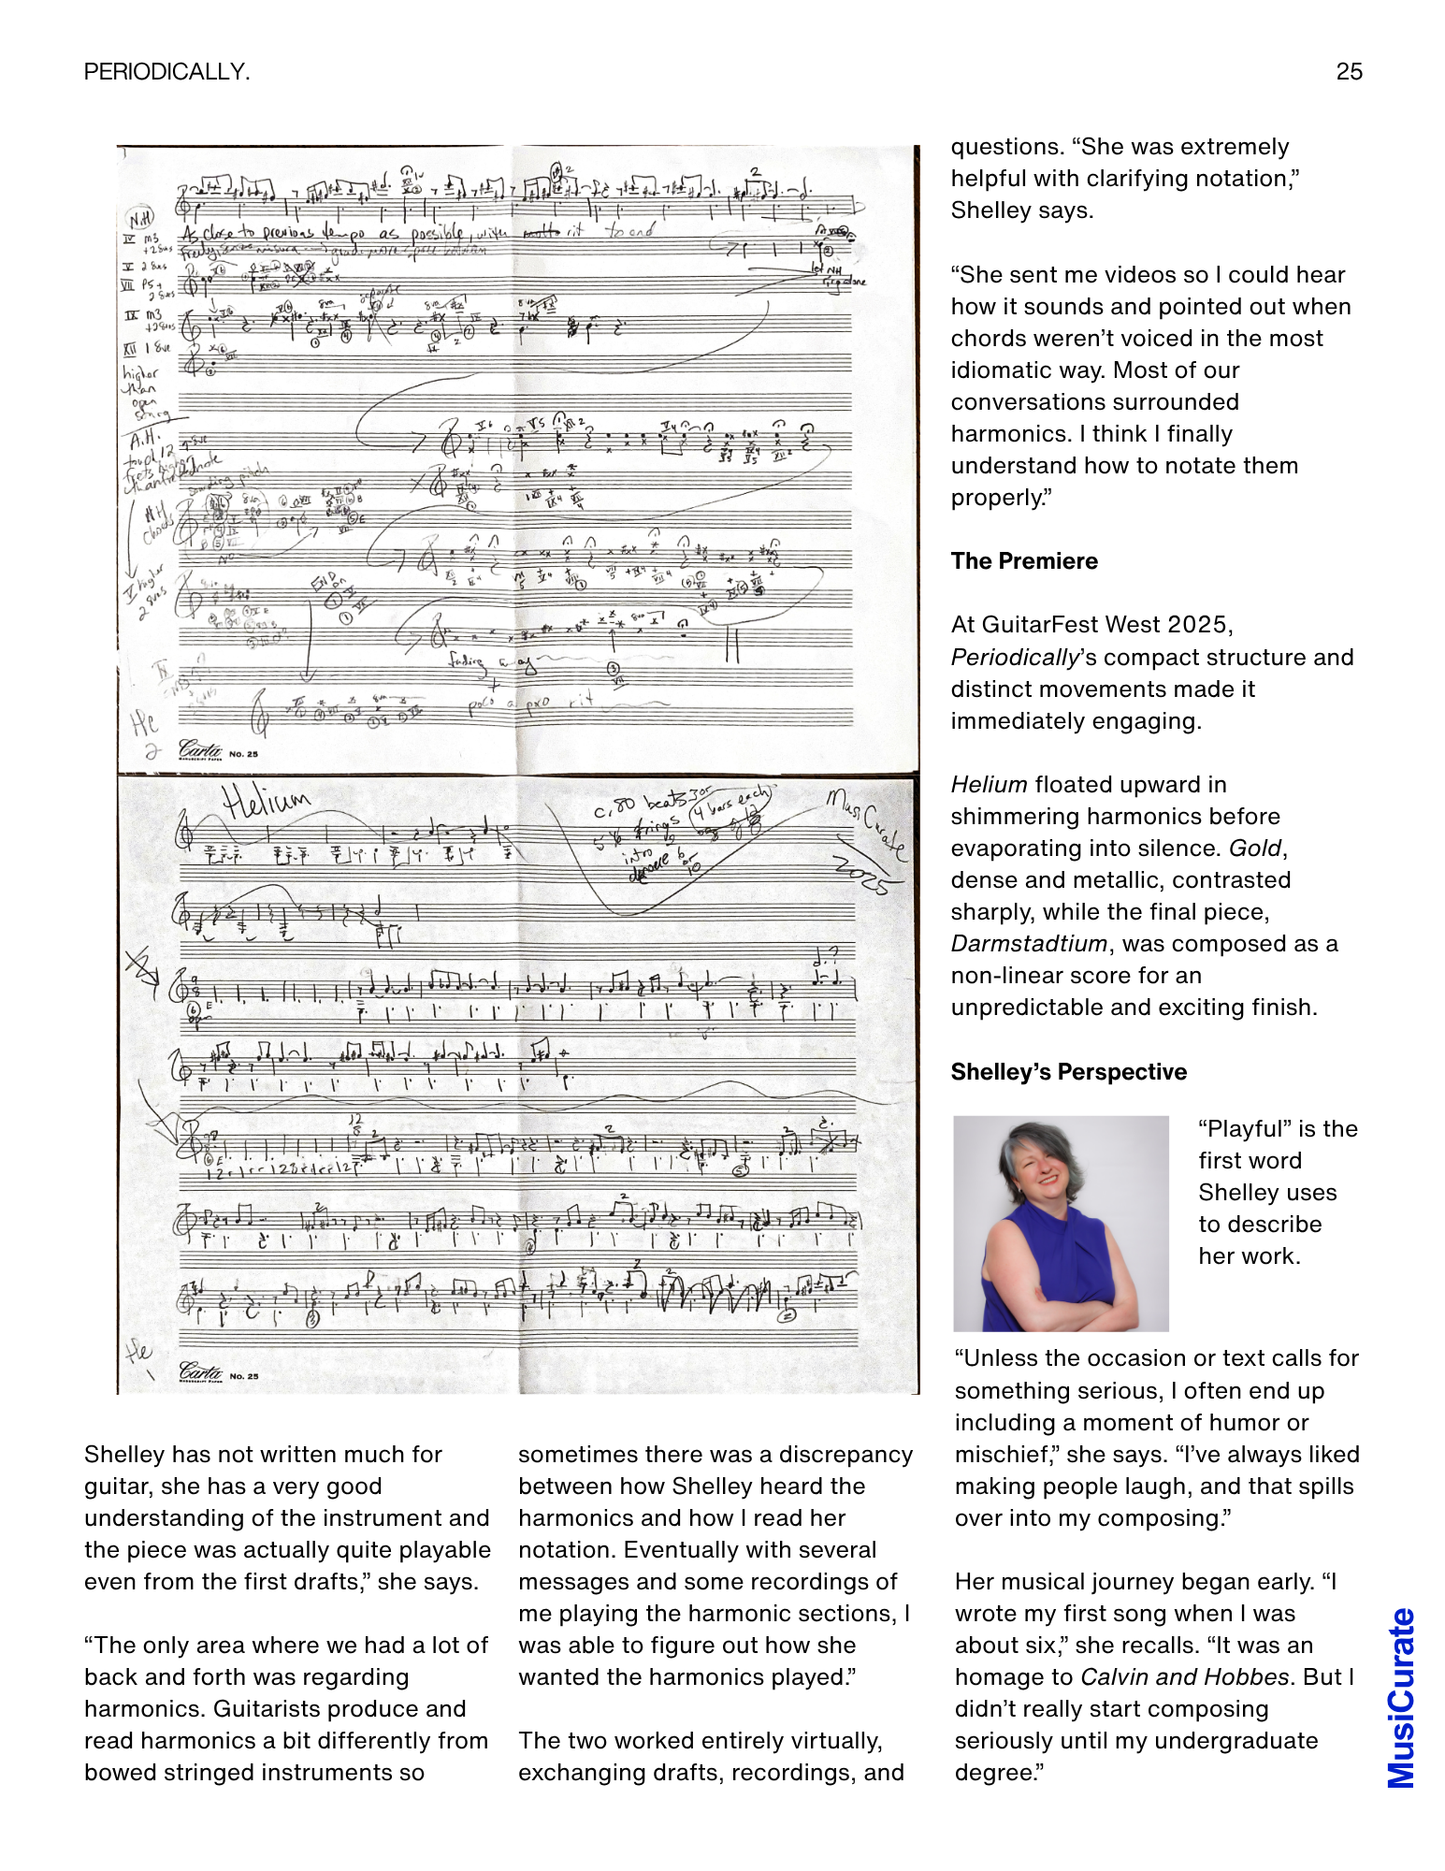 PERIODICALLY.
25
NH
IV m3
V 2 8ves
VII P5+
2 8ves
IX m3
XII 1 8ve
higher
than
open
string
A.H.
As close to previous tempo as possible, with rit to end
let NH
ring
sounding pitch
NH
chords
higher
2 8ves
END
on
fading away
poco a poco rit
He
2
Carta No. 25
MANUSCRIPT PAPER
Helium
c. 80 beats
4 bars each
strings
intro
MusiCurate
2025
He
1
Carta No. 25
MANUSCRIPT PAPER
Shelley has not written much for
guitar, she has a very good
understanding of the instrument and
the piece was actually quite playable
even from the first drafts,” she says.
“The only area where we had a lot of
back and forth was regarding
harmonics. Guitarists produce and
read harmonics a bit differently from
bowed stringed instruments so
sometimes there was a discrepancy
between how Shelley heard the
harmonics and how I read her
notation. Eventually with several
messages and some recordings of
me playing the harmonic sections, I
was able to figure out how she
wanted the harmonics played.”
The two worked entirely virtually,
exchanging drafts, recordings, and
questions. “She was extremely
helpful with clarifying notation,”
Shelley says.
“She sent me videos so I could hear
how it sounds and pointed out when
chords weren’t voiced in the most
idiomatic way. Most of our
conversations surrounded
harmonics. I think I finally
understand how to notate them
properly.”
The Premiere
At GuitarFest West 2025,
Periodically’s compact structure and
distinct movements made it
immediately engaging.
Helium floated upward in
shimmering harmonics before
evaporating into silence. Gold,
dense and metallic, contrasted
sharply, while the final piece,
Darmstadtium, was composed as a
non-linear score for an
unpredictable and exciting finish.
Shelley’s Perspective
“Playful” is the
first word
Shelley uses
to describe
her work.
“Unless the occasion or text calls for
something serious, I often end up
including a moment of humor or
mischief,” she says. “I’ve always liked
making people laugh, and that spills
over into my composing.”
Her musical journey began early. “I
wrote my first song when I was
about six,” she recalls. “It was an
homage to Calvin and Hobbes. But I
didn’t really start composing
seriously until my undergraduate
degree.”
MusiCurate